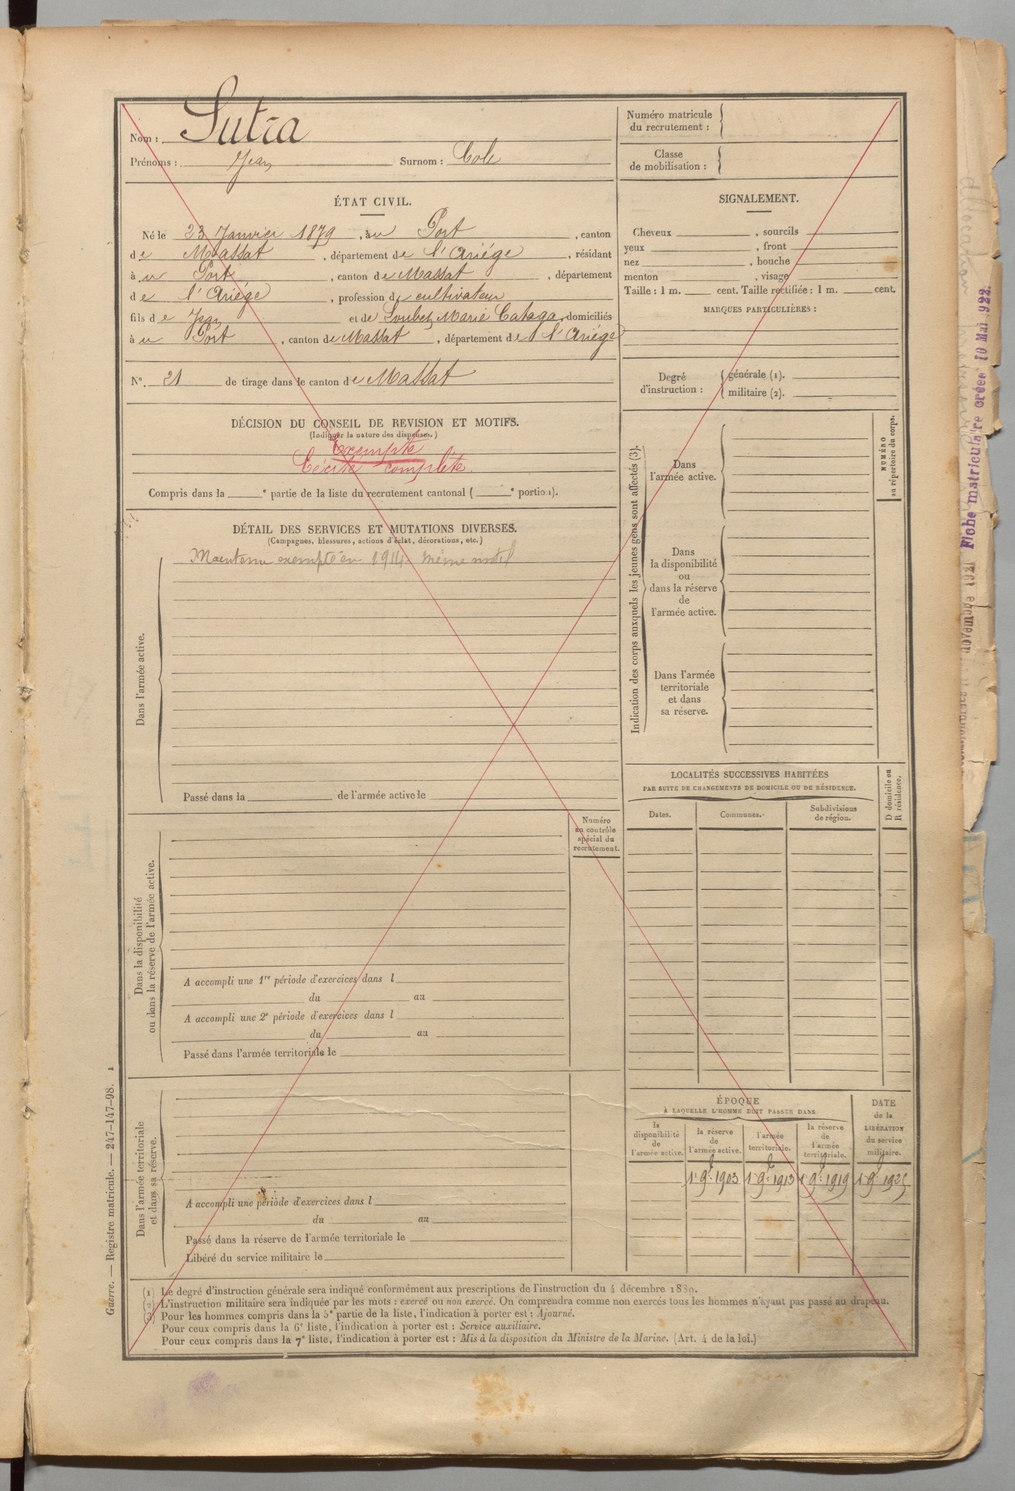 Nom : Sutra
Prénoms : Jean Surnom : Cole
Numéro matricule du recrutement :
Classe de mobilisation :
ÉTAT CIVIL.
Né le 23 Janvier 1879, à u Port, canton
de Massat, département de l'Ariége, résidant
à u Port, canton de Massat, département
de l'Ariége, profession de cultivateur
fils de Jean et de Loubet Marie, domiciliés
à u Port, canton de Massat, département de l'Ariége
N°. 21 de tirage dans le canton de Massat
DÉCISION DU CONSEIL DE REVISION ET MOTIFS.
(Indiquer la nature des dispenses.)
Exempté
Cécité complète
Compris dans la e partie de la liste du recrutement cantonal ( e portion).
DÉTAIL DES SERVICES ET MUTATIONS DIVERSES.
(Campagnes, blessures, actions d'éclat, décorations, etc.)
Maintenu exempté en 1914. même motif
Dans l'armée active.
Passé dans la de l'armée active le
Dans la disponibilité
ou dans la réserve de l'armée active.
Numéro
au contrôle
spécial du
recrutement.
A accompli une 1re période d'exercices dans l
du au
A accompli une 2e période d'exercices dans l
du au
Passé dans l'armée territoriale le
Dans l'armée territoriale
et dans sa réserve.
A accompli une période d'exercices dans l
du au
Passé dans la réserve de l'armée territoriale le
Libéré du service militaire le
SIGNALEMENT.
Cheveux , sourcils
yeux , front
nez , bouche
menton , visage
Taille : 1 m. cent. Taille rectifiée : 1 m. cent.
MARQUES PARTICULIÈRES :
Degré d'instruction :
générale (1).
militaire (2).
Indication des corps auxquels les jeunes gens sont affectés (3).
NUMÉRO
au répertoire du corps.
Dans
l'armée active.
Dans
la disponibilité
ou
dans la réserve
de
l'armée active.
Dans l'armée
territoriale
et dans
sa réserve.
LOCALITÉS SUCCESSIVES HABITÉES
PAR SUITE DE CHANGEMENTS DE DOMICILE OU DE RÉSIDENCE.
D domicile ou
R résidence.
Dates. Communes. Subdivisions de région.
ÉPOQUE
À LAQUELLE L'HOMME DOIT PASSER DANS
DATE
de la
LIBÉRATION
du service
militaire.
la disponibilité de l'armée active.
la réserve de l'armée active.
l'armée territoriale.
la réserve de l'armée territoriale.
1er 9bre 1903 1er 9bre 1913 1er 9bre 1919 1er 9bre 1925
(1) Le degré d'instruction générale sera indiqué conformément aux prescriptions de l'instruction du 4 décembre 1889.
(2) L'instruction militaire sera indiquée par les mots : exercé ou non exercé. On comprendra comme non exercés tous les hommes n'ayant pas passé au drapeau.
(3) Pour les hommes compris dans la 5e partie de la liste, l'indication à porter est : Ajourné.
Pour ceux compris dans la 6e liste, l'indication à porter est : Service auxiliaire.
Pour ceux compris dans la 7e liste, l'indication à porter est : Mis à la disposition du Ministre de la Marine. (Art. 4 de la loi.)
Guerre. — Registre matricule. — 247-147-98. 1
Fiche matriculaire créée 10 Mai 922.
novembre 1921